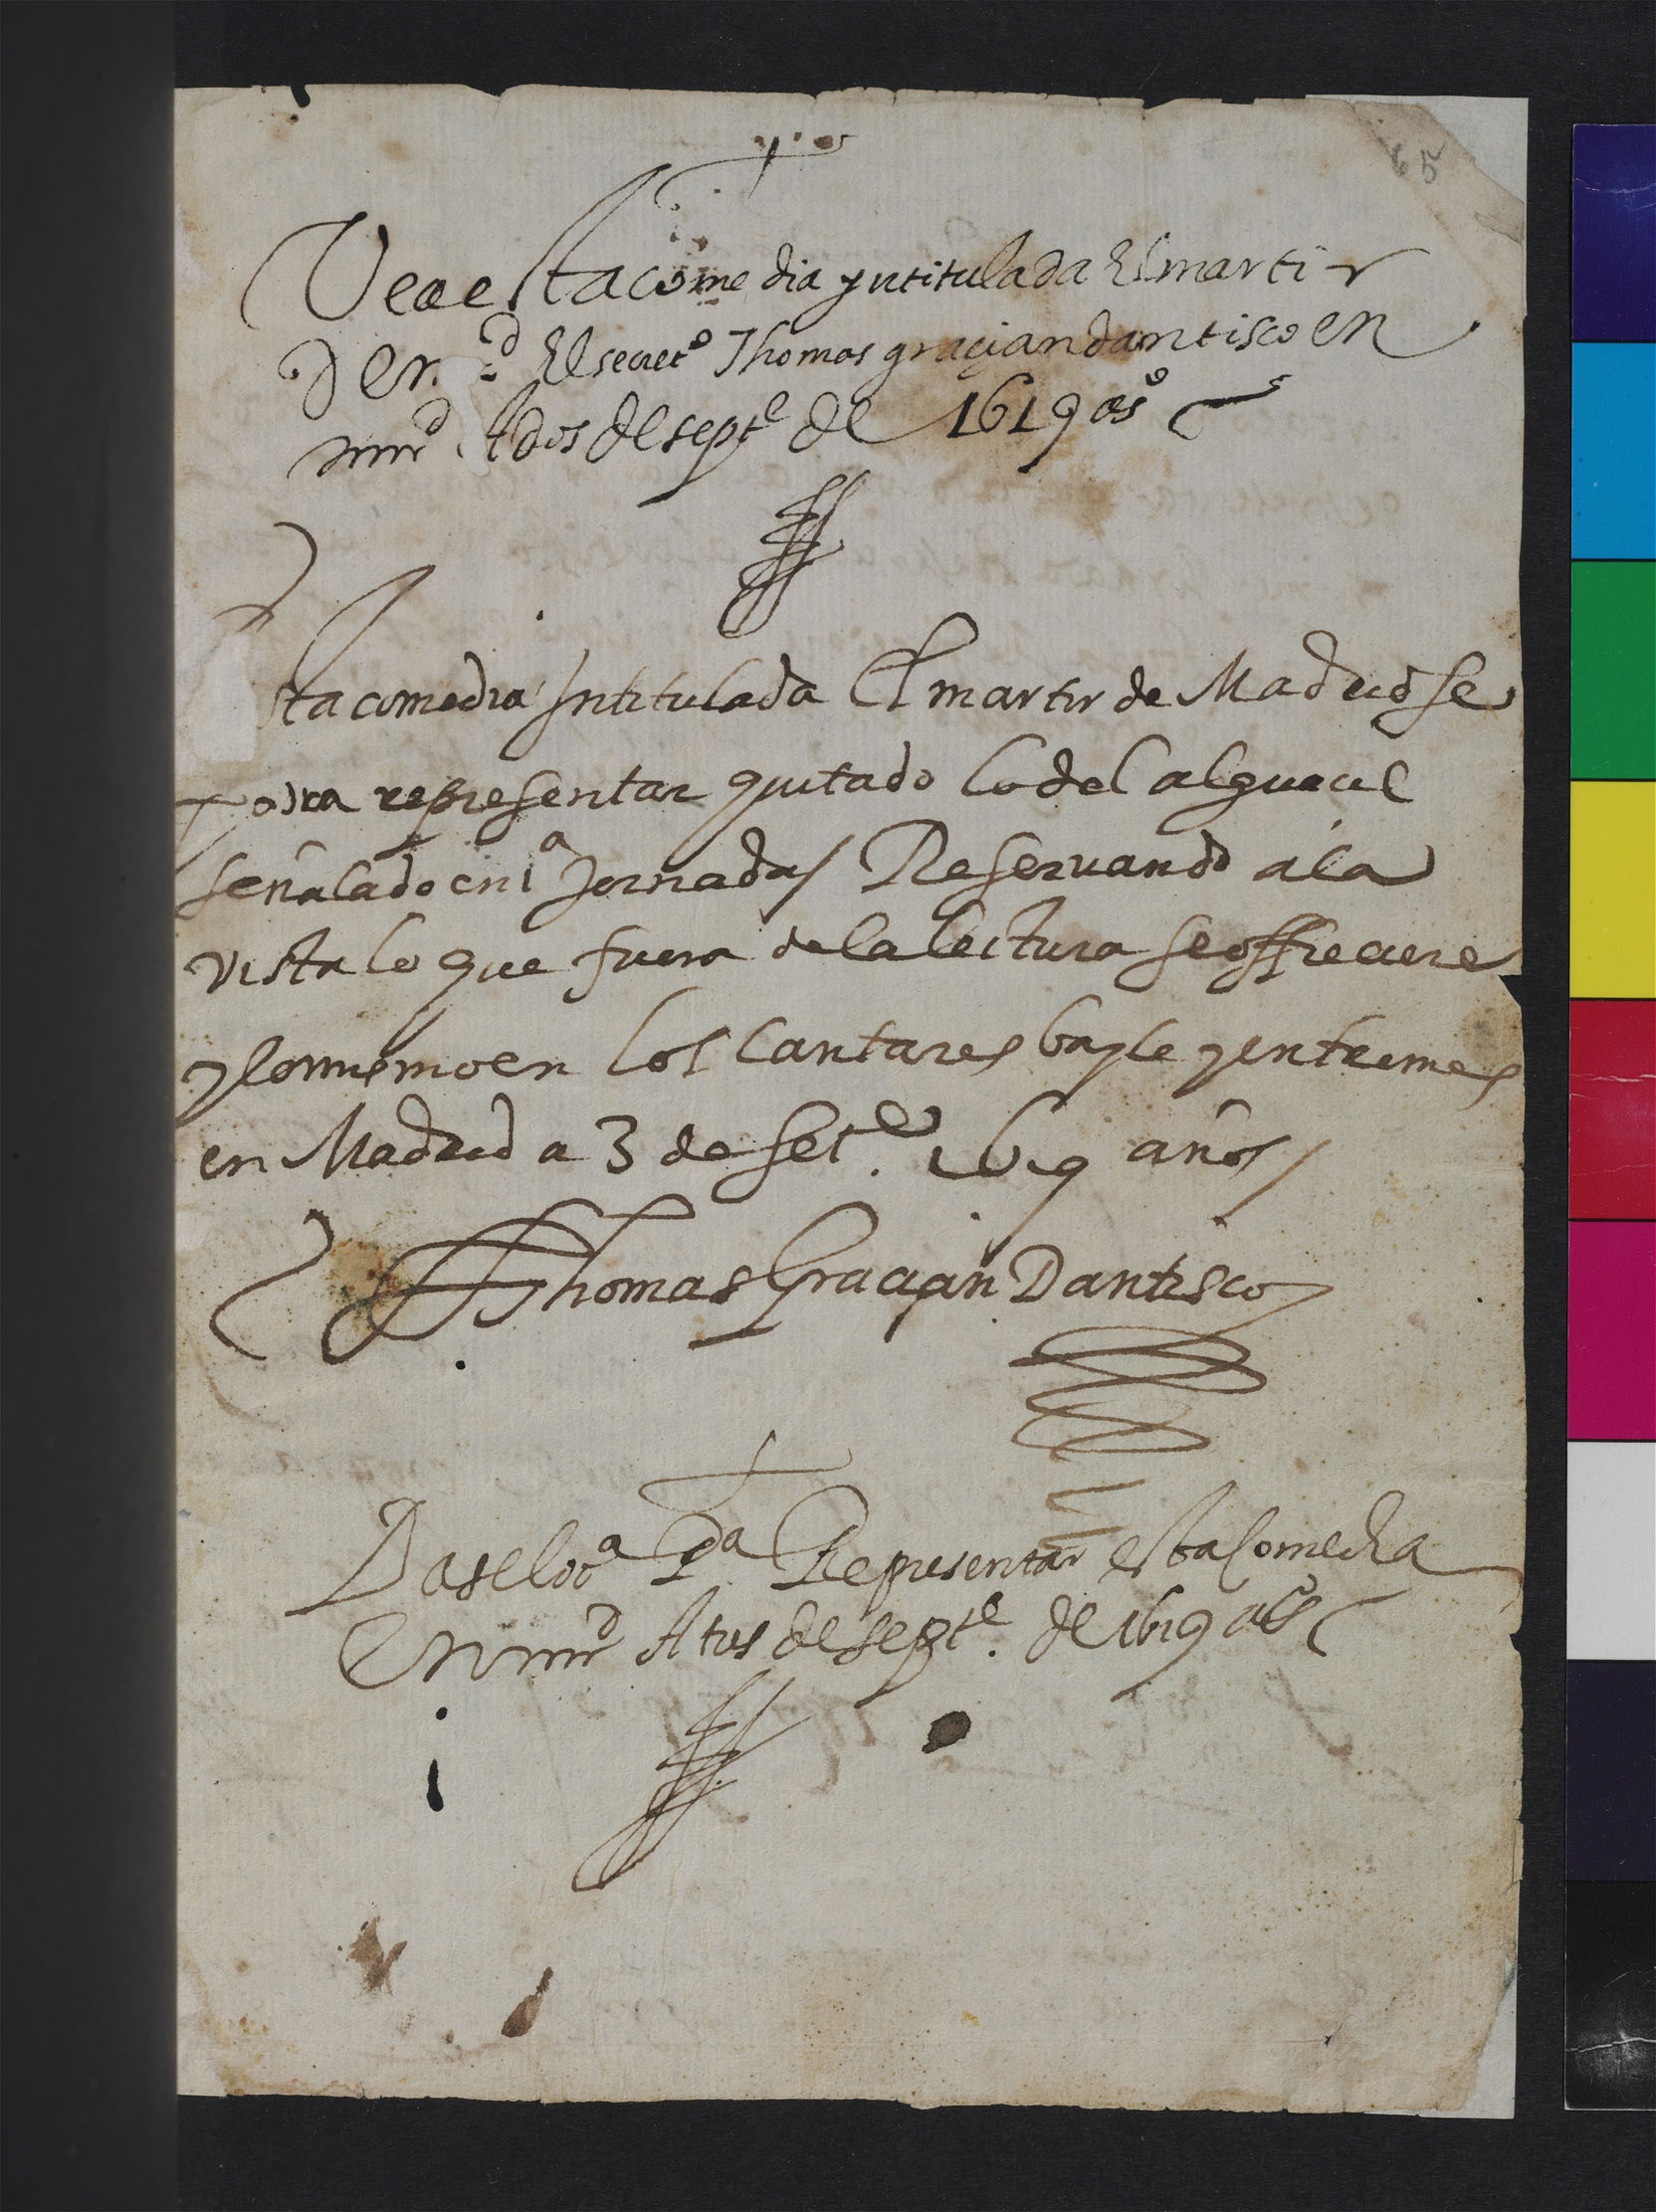 65
Vea esta comedia yntitulada El martir
de m.d El secret.o Thomas graçian dantisco en
md A dos de sept.e de 1619 a.os
sta comedia Intitulada El martir de Madrid se
podra representar quitado lo del alguacil
señalado en 1.a Jornada / Reseruando a la
vista lo que fuera de la lectura se offreciere
y lo mismo en los Cantares bayle y entremes
en Madrid a 3 de set.e 1619 años /
Thomas Gracian Dantisco
Dase lic.a P.a Representar esta Comedia
En md A tres de sept.e de 1619 a.os